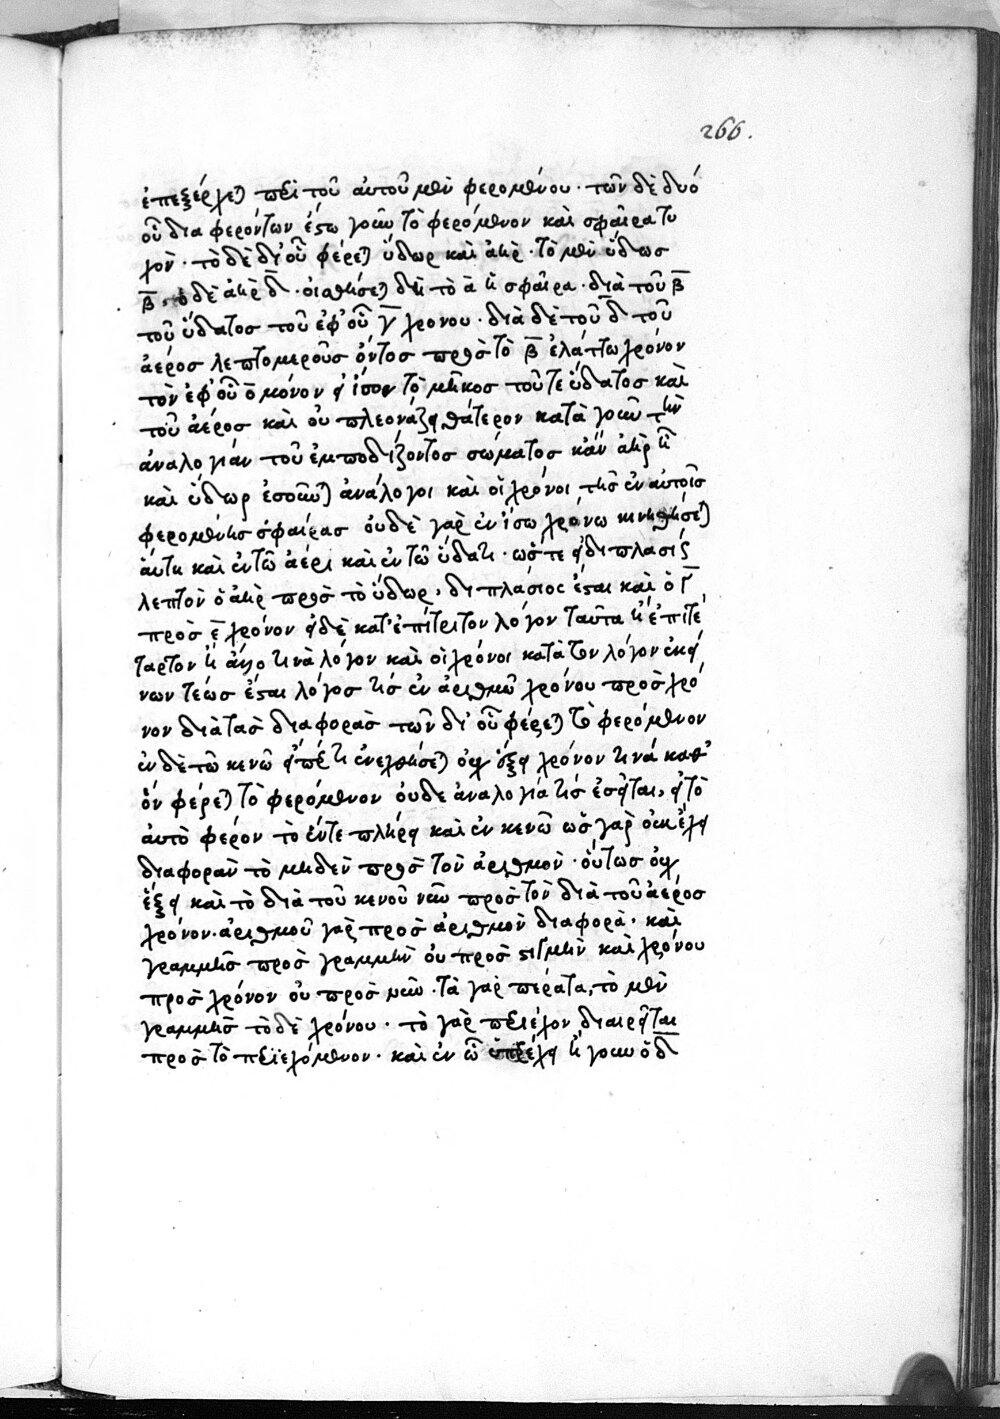 266.
ἐπεξέρχεται περὶ τοῦ αὐτοῦ μὲν φερομένου · τῶν δὲ δυό
οὗ διαφερόντων ἔστω γοῦν τὸ φερόμενον καὶ σφαῖρα τυ
χὸν · τὸ δὲ δι' οὗ φέρεται ὕδωρ καὶ ἀὴρ · τὸ μὲν ὕδωρ
β, ὁ δὲ ἀὴρ δ · οἰσθήσεται δὴ τὸ α ἡ σφαῖρα · διὰ τοῦ β
τοῦ ὕδατος τοῦ ἐφ' οὗ γ χρόνου · διὰ δὲ τοῦ δ τοῦ
ἀέρος λεπτομεροῦς ὄντος πρὸς τὸ β ἐλάττω χρόνον
τὸν ἐφ' οὗ ὁ μόνον εἰ ἴσον τὸ μῆκος τοῦ τε ὕδατος καὶ
τοῦ ἀέρος καὶ οὐ πλεονάζει θάτερον κατὰ γοῦν τὴν
ἀναλογίαν τοῦ ἐμποδίζοντος σώματος κἂν ἀὴρ ᾖ
καὶ ὕδωρ ἔσονται ἀνάλογοι καὶ οἱ χρόνοι τῆς ἐν αὐτοῖς
φερομένης σφαίρας οὐδὲ γὰρ ἐν ἴσω χρόνω κινηθήσεται
αὕτη καὶ ἐν τῶ ἀέρι καὶ ἐν τῶ ὕδατι · ὥστε εἰ διπλασίως
λεπτὸν ὁ ἀὴρ πρὸς τὸ ὕδωρ, διπλάσιος ἔσται καὶ ὁ γ
πρὸς ε χρόνον εἰ δὲ κατ' ἐπίτριτον λόγον ταῦτα ἢ ἐπιτέ
ταρτον ἢ ἄλλο τινὰ λόγον καὶ οἱ χρόνοι κατὰ τὸν λόγον ἐκεί
νων τέως ἔσται λόγος τίς ἐν ἀριθμῶ χρόνου πρὸς χρό
νον διὰ τὰς διαφορὰς τῶν δι' οὗ φέρεται τὸ φερόμενον
ἐν δὲ τῶ κενῶ εἴπέρ τι ἐνεχθήσεται οὐχ ἕξει χρόνον τινά καθ'
ὃν φέρεται τὸ φερόμενον οὐδε ἀναλογία τίς ἐσεῖται, εἰ τὸ
αὐτὸ φέρον τὸ ἔν τε πλήρει καὶ ἐν κενῶ ὡς γὰρ οὐκ ἔχει
διαφορὰν τὸ μηδὲν πρὸς τὸν ἀριθμὸν · οὕτως οὐχ
ἕξει καὶ τὸ διὰ τοῦ κενοῦ νῦν πρὸς τὸν διὰ τοῦ ἀέρος
χρόνον · ἀριθμοῦ γὰρ πρὸς ἀριθμὸν διαφορὰ · καὶ
γραμμῆς πρὸς γραμμὴν οὐ πρὸς στιγμὴν καὶ χρόνου
πρὸς χρόνον οὐ πρὸς νῦν · τὰ γὰρ πέρατα, τὸ μὲν
γραμμῆς τὸ δὲ χρόνου · τὸ γὰρ περιέχον διαιρεῖται
πρὸς τὸ περιεχόμενον · καὶ ἐν ᾧ ὑπερέχει ἢ γοῦν ὁ δ